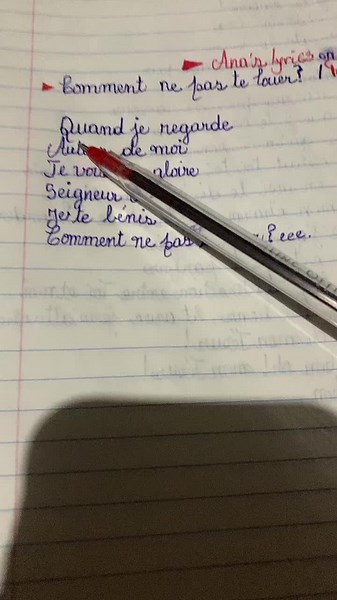 Ana's lyrics on
Comment ne pas te louer?
Quand je regarde
de moi
Je gloire
Seigneur
Je te bénis
Comment ne pas ?eee.